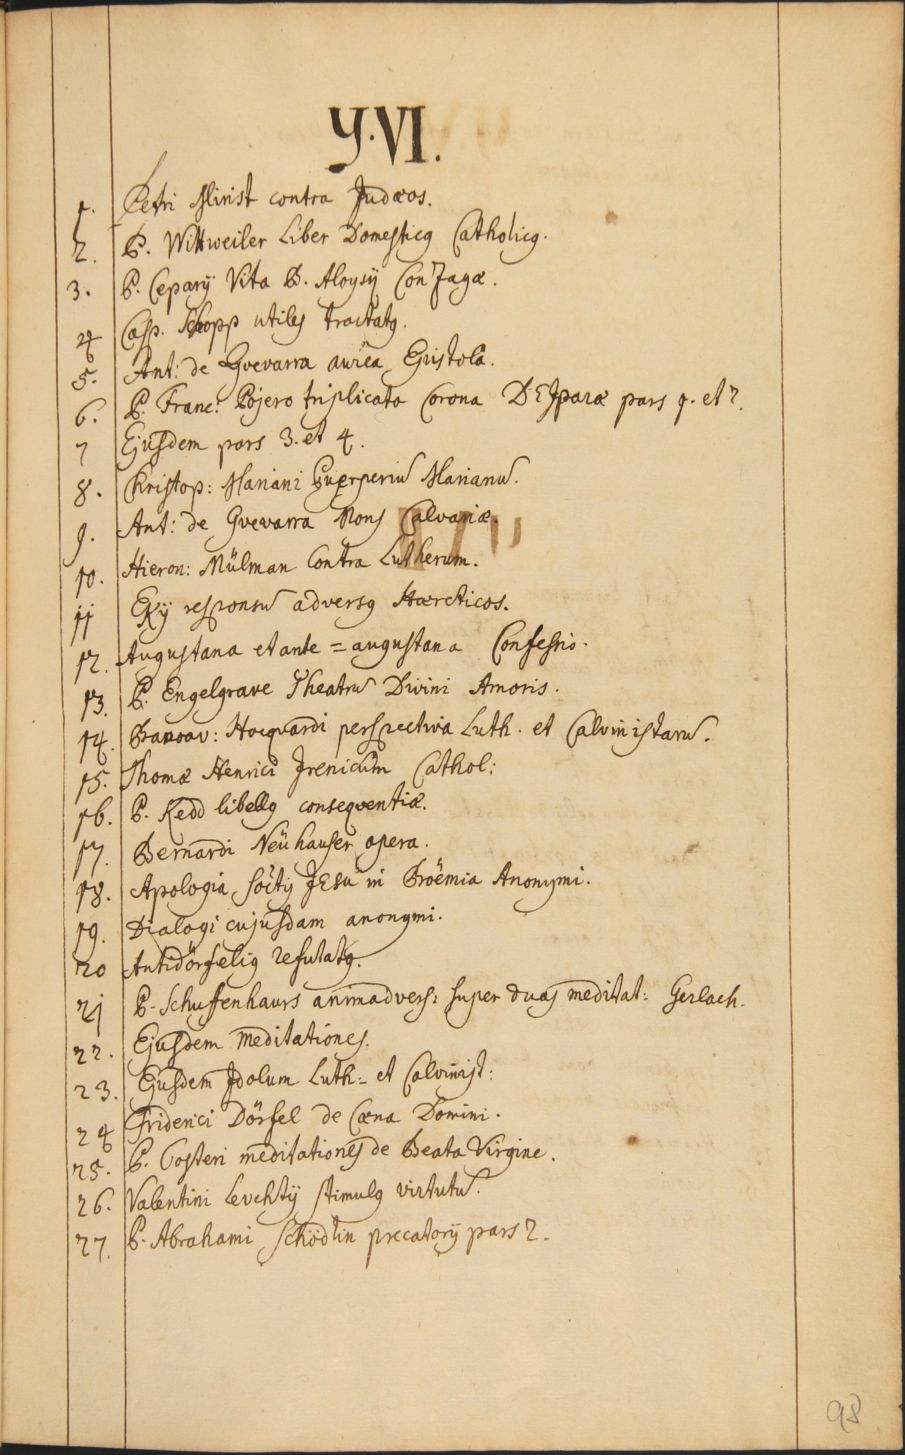 Y.VI.
1. Petri Mirist contra Judæos.
2. P. Wittweiler Liber Domesticq Catholicq.
3. P. Ceparij Vita B. Aloysij Gonzagæ.
4 Casp. Schopp utiles tractatq.
5. Ant: de Gvevarra aurea Epistola.
6. P. Franc: Pojero triplicata Corona DEJparæ pars 1. et 2.
7 Ejusdem pars 3. et 4.
8. Christop: Mariani Puerperiũ Marianũ.
9. Ant: de Gvevarra Mons Calvariæ.
10. Hieron: Mülman Contra Lutherum.
11 Ekij responsũ adversq Hæreticos.
12. Augustana et ante = augustana Confessio.
13. P. Engelgrave Theatrũ Divini Amoris.
14. Hocquardi perspectiva Luth. et Calvinistarũ.
15. Thomæ Henrici Jrenicum Cathol:
16. P. Kedd libellq conseqventiæ.
17. Bernardi Neühauser opera.
18. Apologia Socitij JEsu in Böemia Anonymi.
19. Dialogi cujusdam anonymi.
20 Antidörfeliq refutatq.
21 P. Schuffenhaurs animadvers: super duas meditat: Gerlach.
22. Ejusdem meditationes.
23. Ejusdem Jdolum Luth: et Calvinist:
24 Friderici Dörfel de Cæna Domini.
25. P. Costeri meditationes de Beata Virgine.
26. Valentini Levchtij stimulq virtutũ.
27. P. Abrahami Schödlin precatorij pars 2.
98